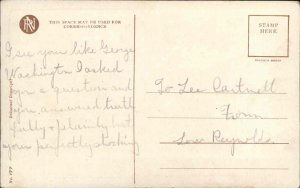 THIS SPACE MAY BE USED FOR
CORRESPONDENCE
STAMP
HERE
I see you like George
Washington I asked
you a question and
you answered truth
fully & plainly but
your perfectly shocking
To Lee Cartmell
From
Reynolds
No. 177